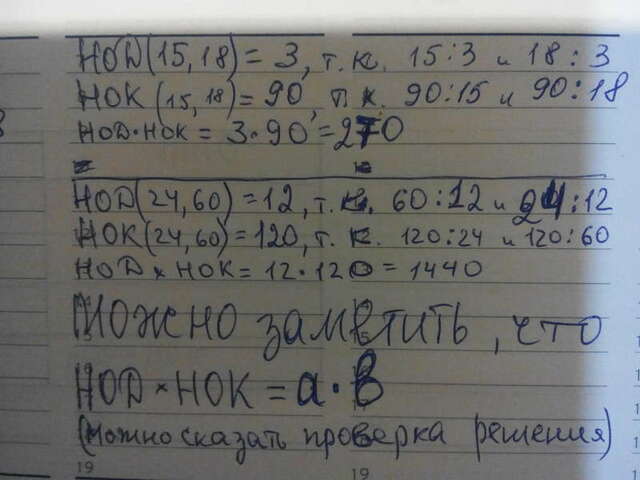 НОD(15,18) = 3, т.к. 15:3 и 18:3
НОК (15,18) = 90, т.к. 90:15 и 90:18
НОD·НОК = 3·90 = 270
НОD(24,60) = 12, т.к. 60:12 и 24:12
НОК(24,60) = 120, т.к. 120:24 и 120:60
НОD × НОК = 12·120 = 1440
Можно заметить, что
НОD × НОК = а·в
(можно сказать проверка решения)
19 19